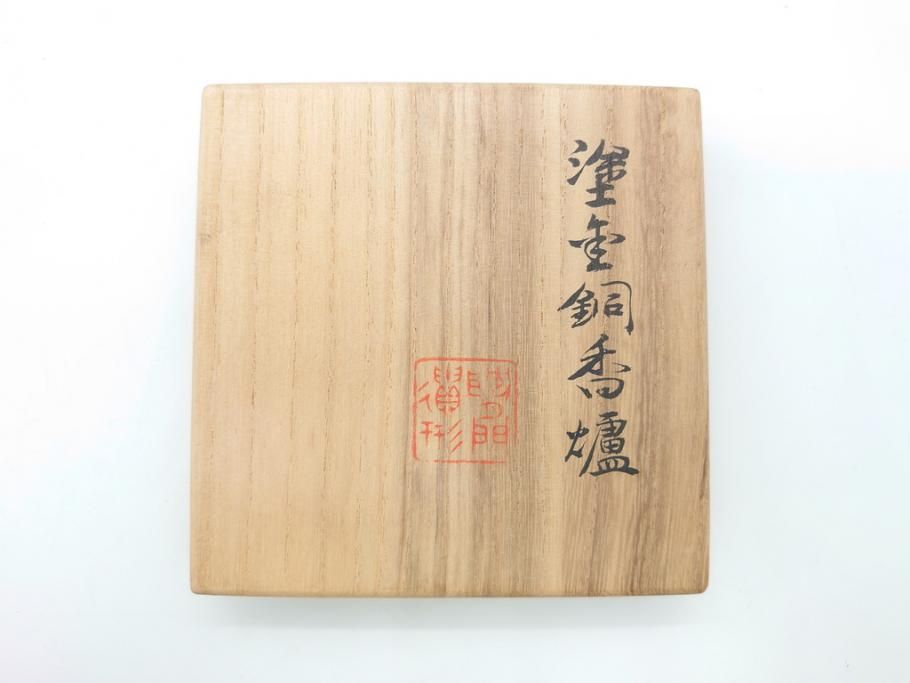 塗金銅香爐